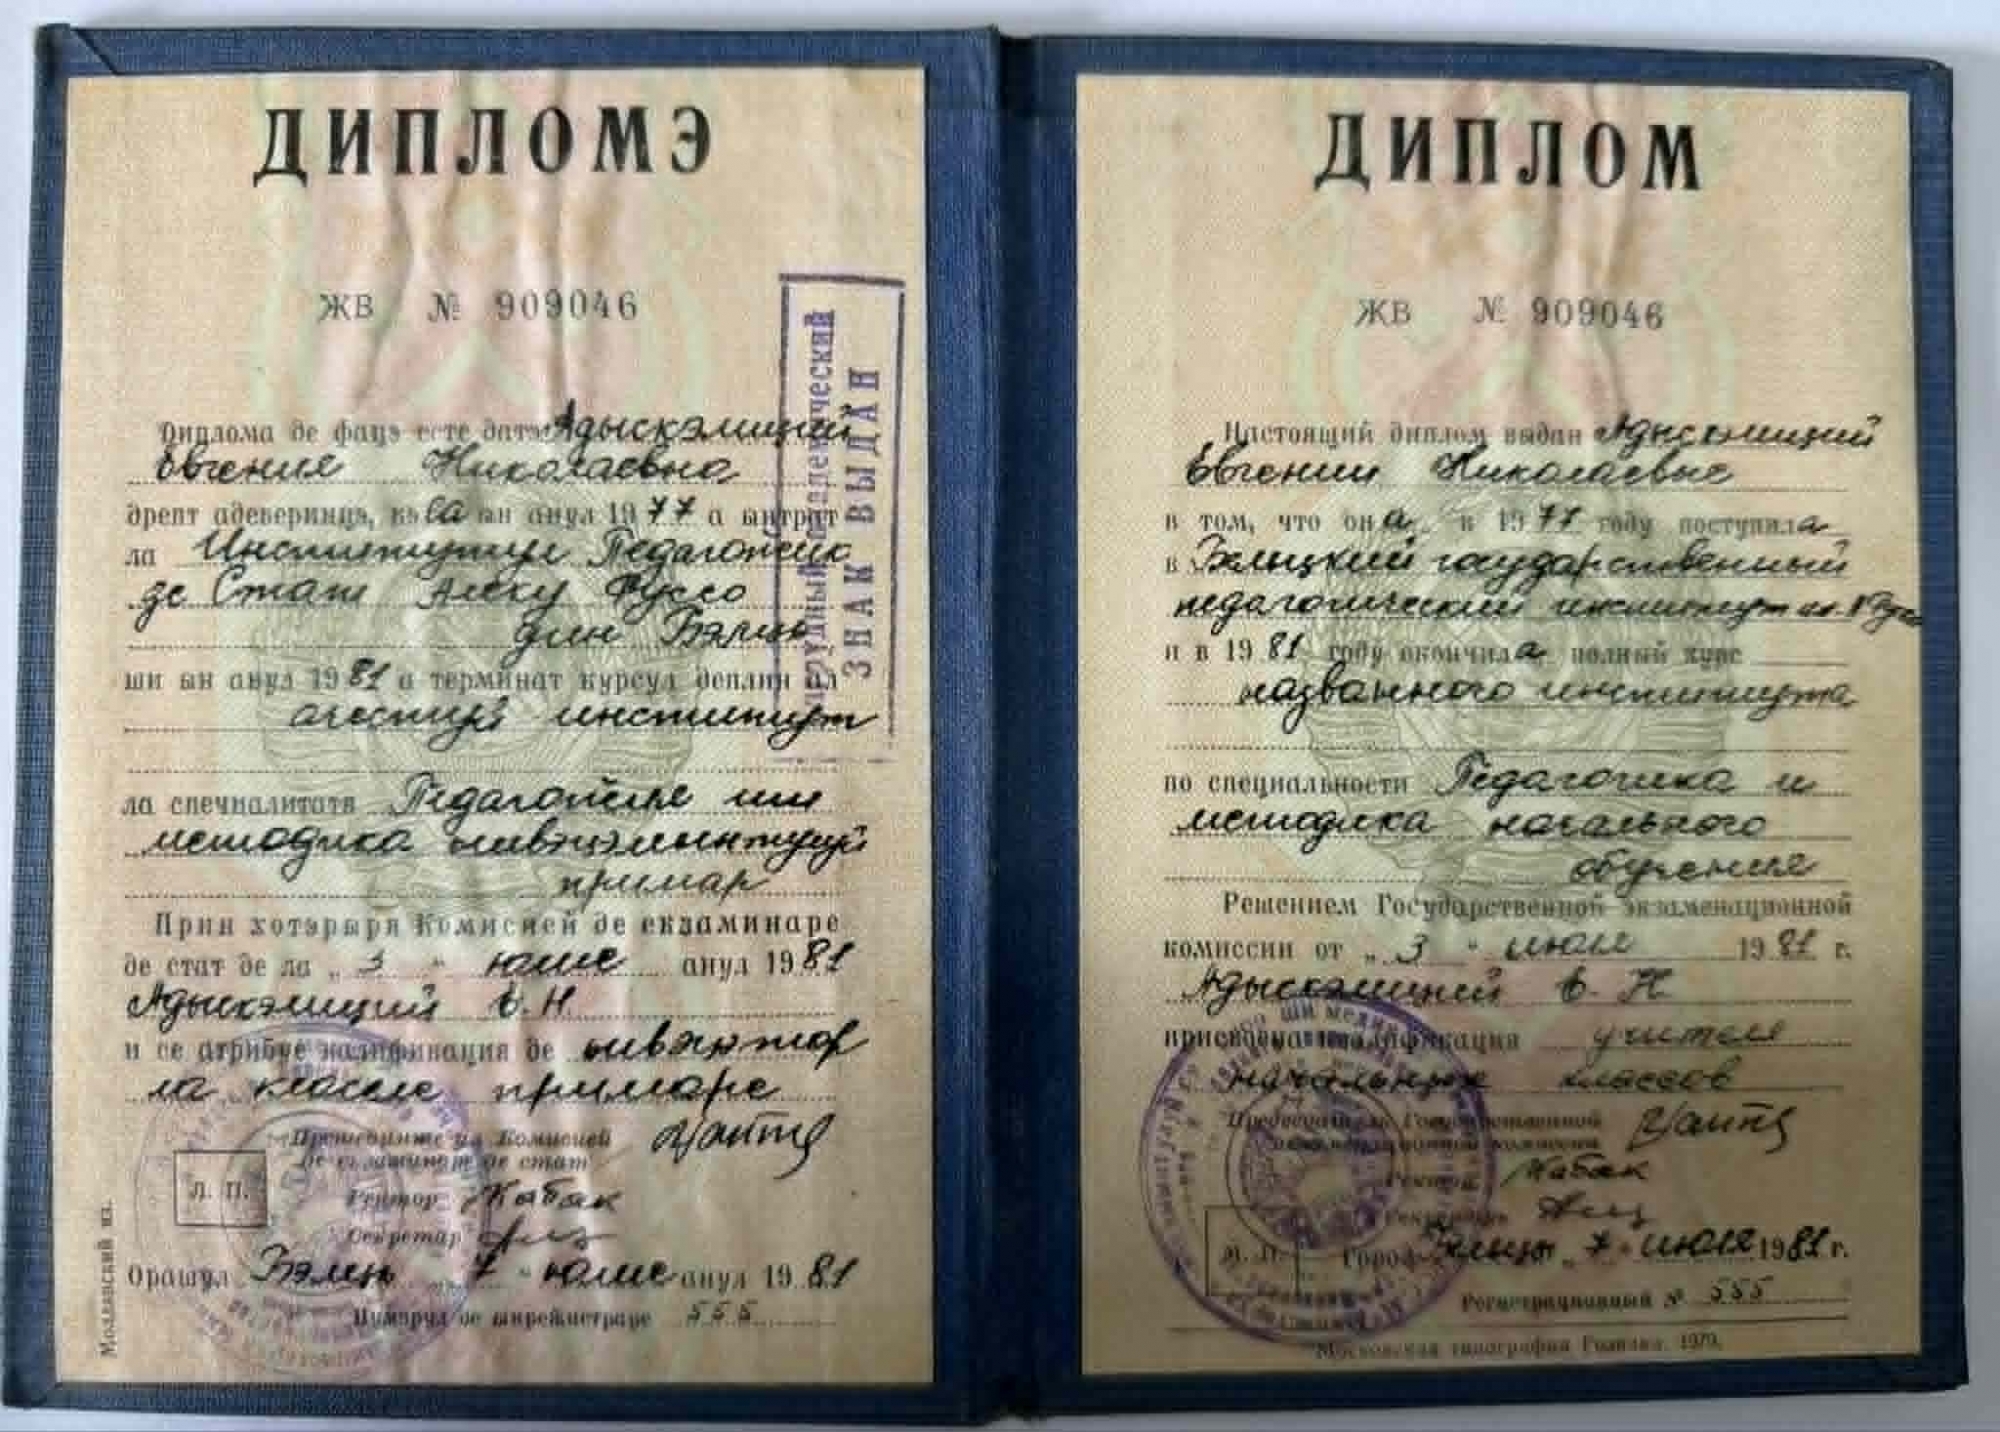 ДИПЛОМЭ
ЖВ № 909046
Диплома де фацэ есте датэ Адыскэлицей
Евгения Николаевна
дрепт адеверинцэ, кэ еа ын анул 1977 а ынтрат
ла Институтул Педагожик
де Стат Алеку Руссо
дин Бэлць
ши ын анул 1981 а терминат курсул деплин ал
ачестуй институт
ла специалитатя Педагожие ши
методика ынвэцэмынтулуй
примар
Прин хотэрыря Комисией де екзаминаре
де стат де ла „3" юлие анул 1981
Адыскэлицей Е. Н.
и се атрибуе калификация де ынвэцэтор
ла класеле примаре
Прешединте ал Комисией
де екзаминаре де стат
Л. П.
Ректор
Секретар
Орашул Бэлць „7" юлие анул 1981
Нумэрул де ынрежистраре 555
Молдавский яз.
Нагрудный академический
ЗНАК ВЫДАН
ДИПЛОМ
ЖВ № 909046
Настоящий диплом выдан Адыскэлицей
Евгении Николаевне
в том, что она в 1977 году поступила
в Бельцкий государственный
педагогический институт им. А Руссо
и в 1981 году окончила полный курс
названного института
по специальности Педагогика и
методика начального
обучения
Решением Государственной экзаменационной
комиссии от „3" июля 1981 г.
Адыскэлицей Е. Н.
присвоена квалификация учителя
начальных классов
Председатель Государственной
экзаменационной комиссии
Ректор
Секретарь
М. П.
Город Бельцы „7" июля 1981 г.
Регистрационный № 555
Московская типография Гознака. 1979.